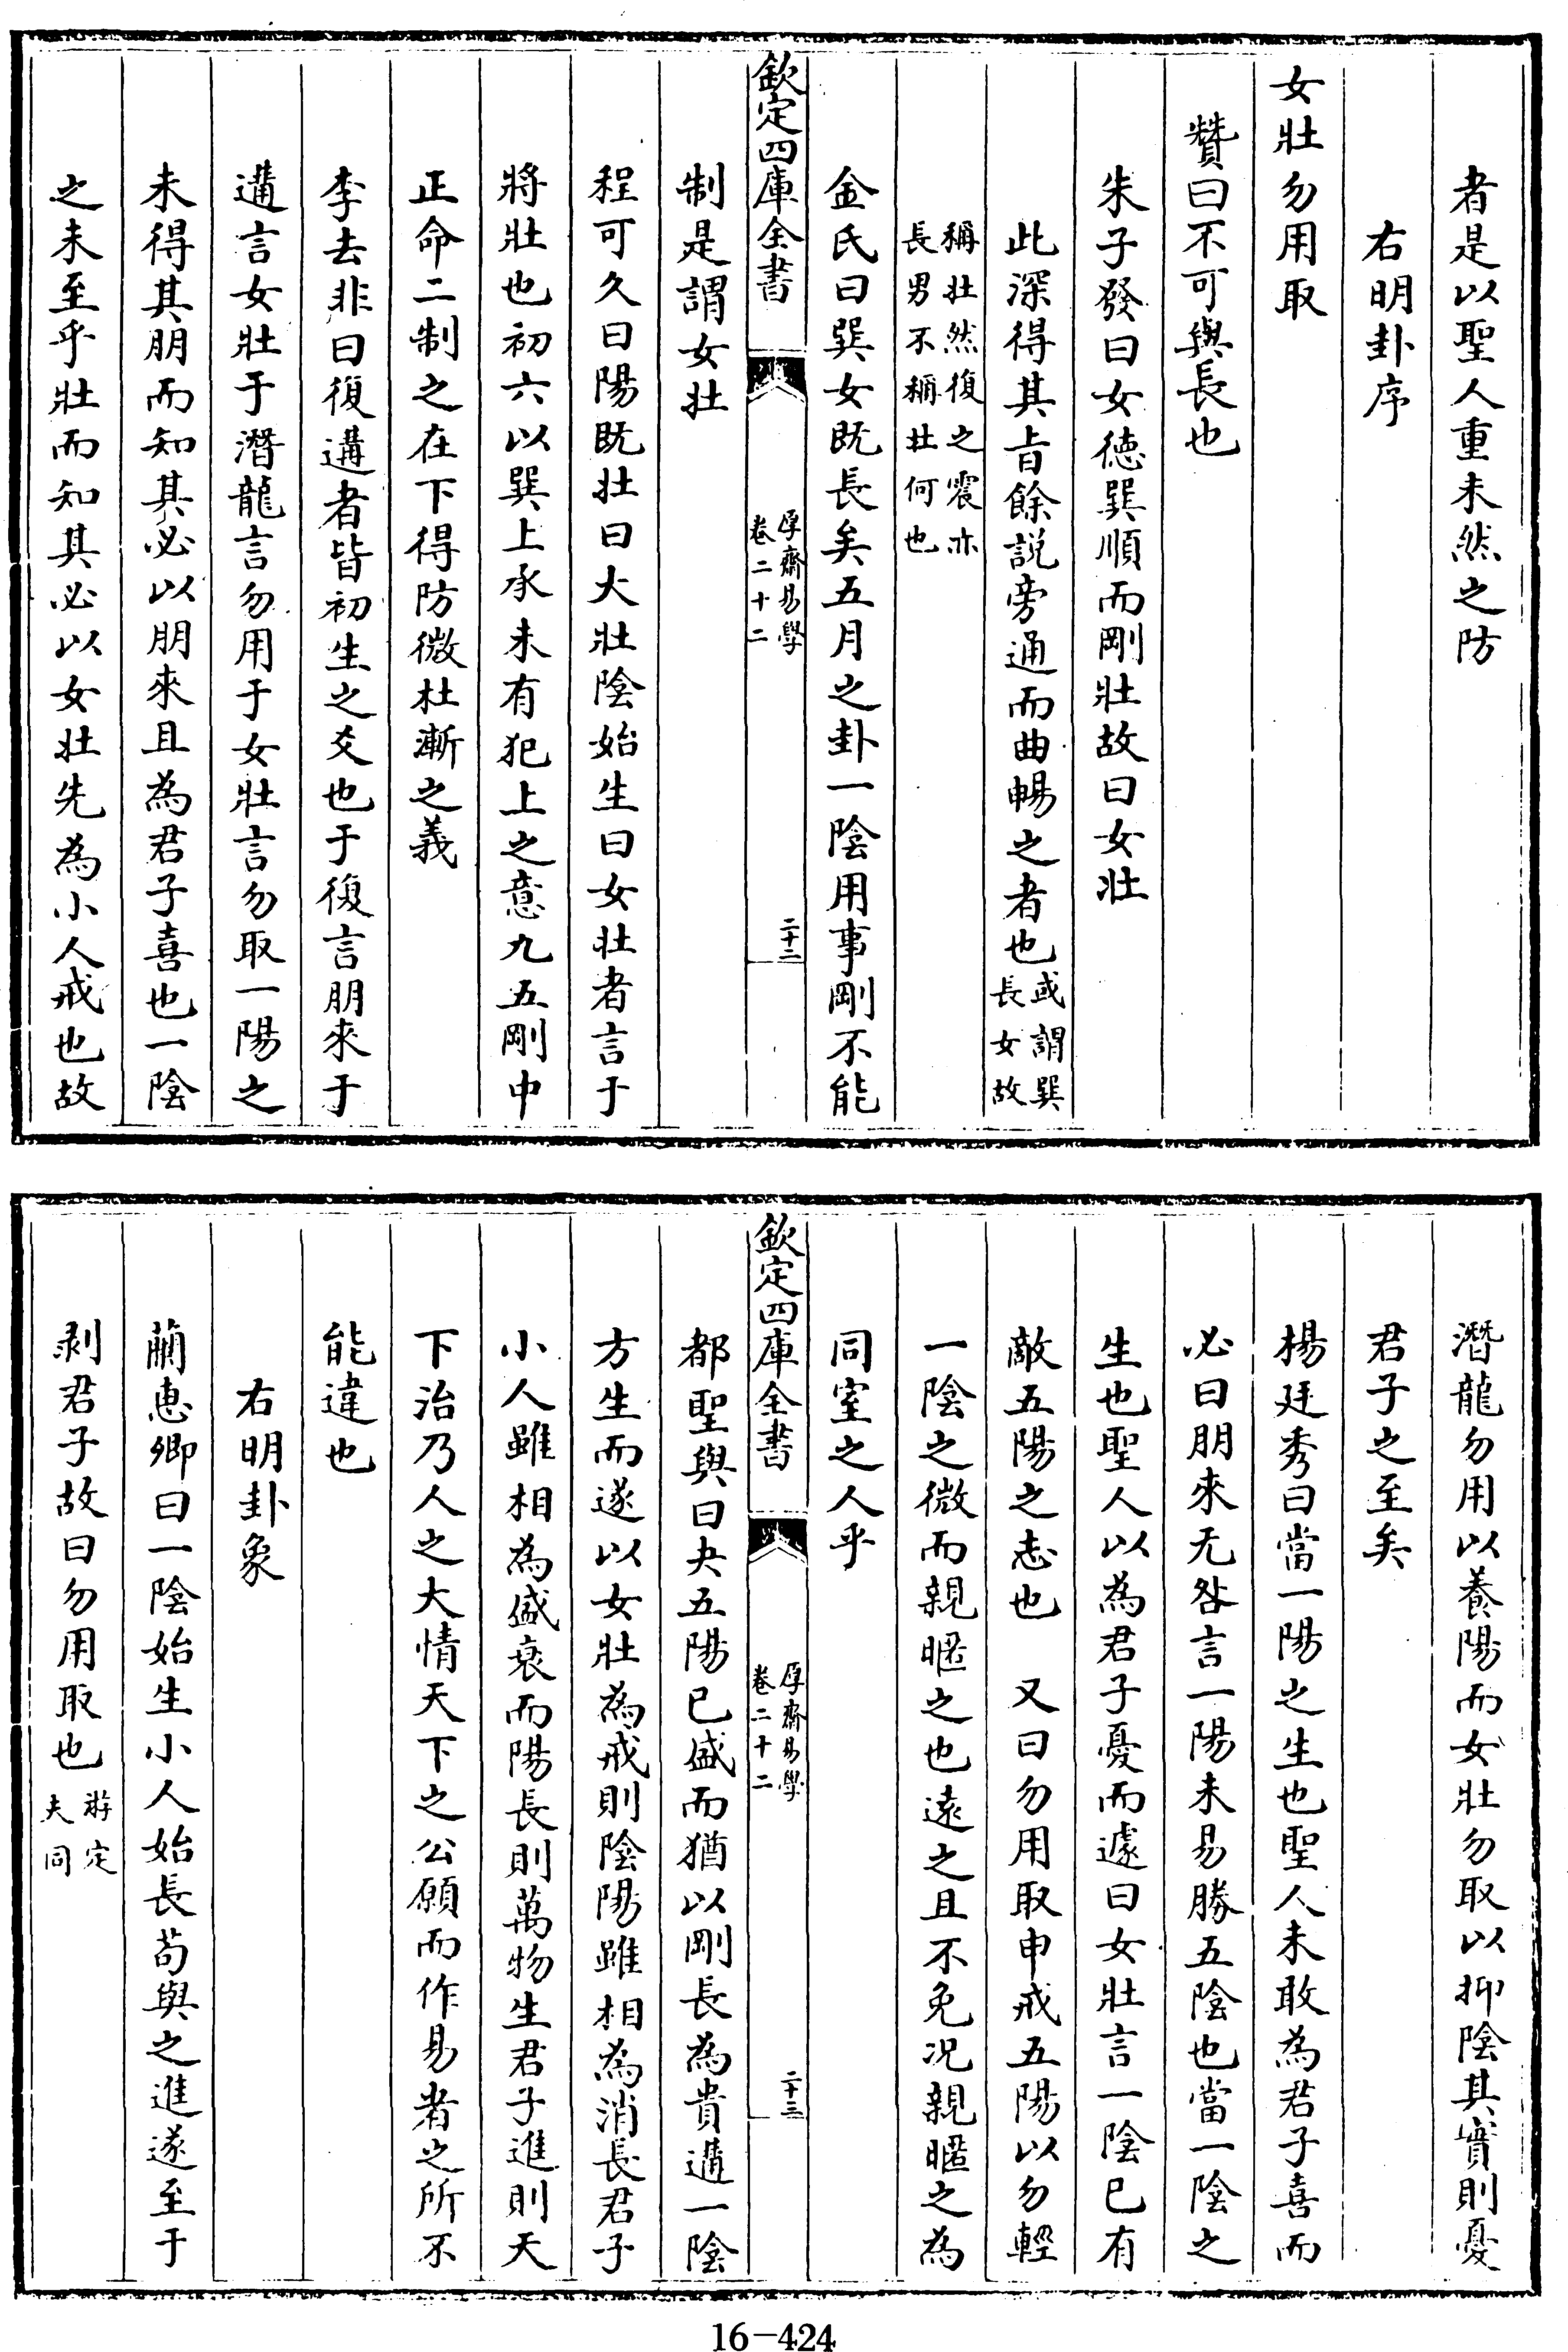 者是以聖人重未然之防
右明卦序
女壯勿用取
贊曰不可與長也
朱子發曰女德巽順而剛壯故曰女壯
此深得其旨餘説旁通而曲暢之者也或謂巽
長女故
稱壯然復之震亦
長男不稱壯何也
金氏曰巽女既長矣五月之卦一陰用事剛不能
欽定四庫全書
厚齋易學
卷二十二
二十二
制是謂女壯
程可久曰陽既壯曰大壯陰始生曰女壯者言于
將壯也初六以巽上承未有犯上之意九五剛中
正命二制之在下得防微杜漸之義
李去非曰復遘者皆初生之爻也于復言朋來于
遘言女壯于潛龍言勿用于女壯言勿取一陽之
未得其朋而知其必以朋來且為君子喜也一陰
之未至乎壯而知其必以女壯先為小人戒也故
潛龍勿用以養陽而女壯勿取以抑陰其實則憂
君子之至矣
楊廷秀曰當一陽之生也聖人未敢為君子喜而
必曰朋來无咎言一陽未易勝五陰也當一陰之
生也聖人以為君子憂而遽曰女壯言一陰已有
敵五陽之志也　又曰勿用取申戒五陽以勿輕
一陰之微而親暱之也遠之且不免況親暱之為
同室之人乎
欽定四庫全書
厚齋易學
卷二十二
二十三
都聖與曰夬五陽已盛而猶以剛長為貴遘一陰
方生而遂以女壯為戒則陰陽雖相為消長君子
小人雖相為盛衰而陽長則萬物生君子進則天
下治乃人之大情天下之公願而作易者之所不
能違也
右明卦象
蘭惠卿曰一陰始生小人始長苟與之進遂至于
剥君子故曰勿用取也游定
夫同
16-424